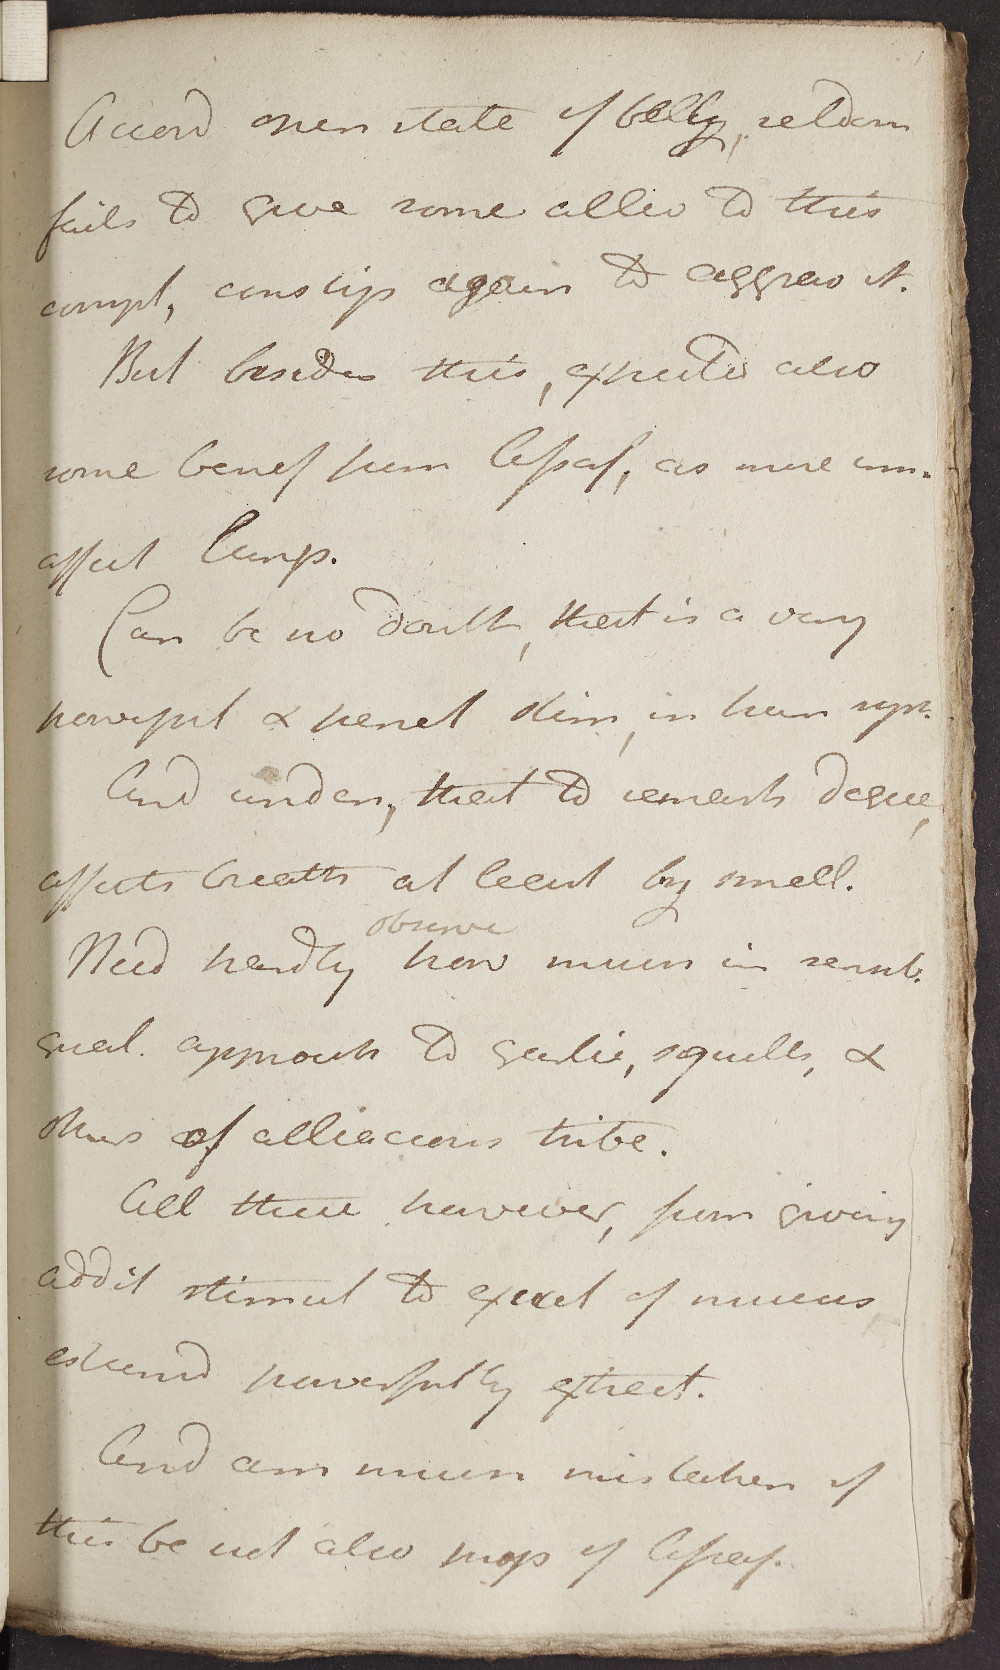 Accord open state of belly, seldom
fails to give some allev to this
compl, constip again to aggrav it.
But besides this, expected also
some benef from Assaf, as more imm.
affect lungs.
Can be no doubt, that is a very
powerful & penet stim, in hum syst.
And under, that to remark degree,
affects breath at least by smell.
observe
Need hardly how much in sensib.
qual. approach to garlic, squills, &
others of alliaceous tribe.
All these however, from giving
addit stimul to excret of mucus,
esteemd powerfully expect.
And am much mistaken if
this be not also prop of Assaf.